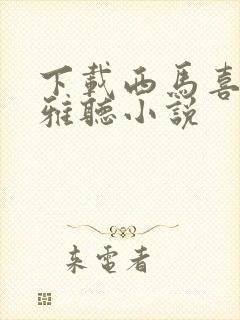 下載西馬喜
雅聽小說
来電者